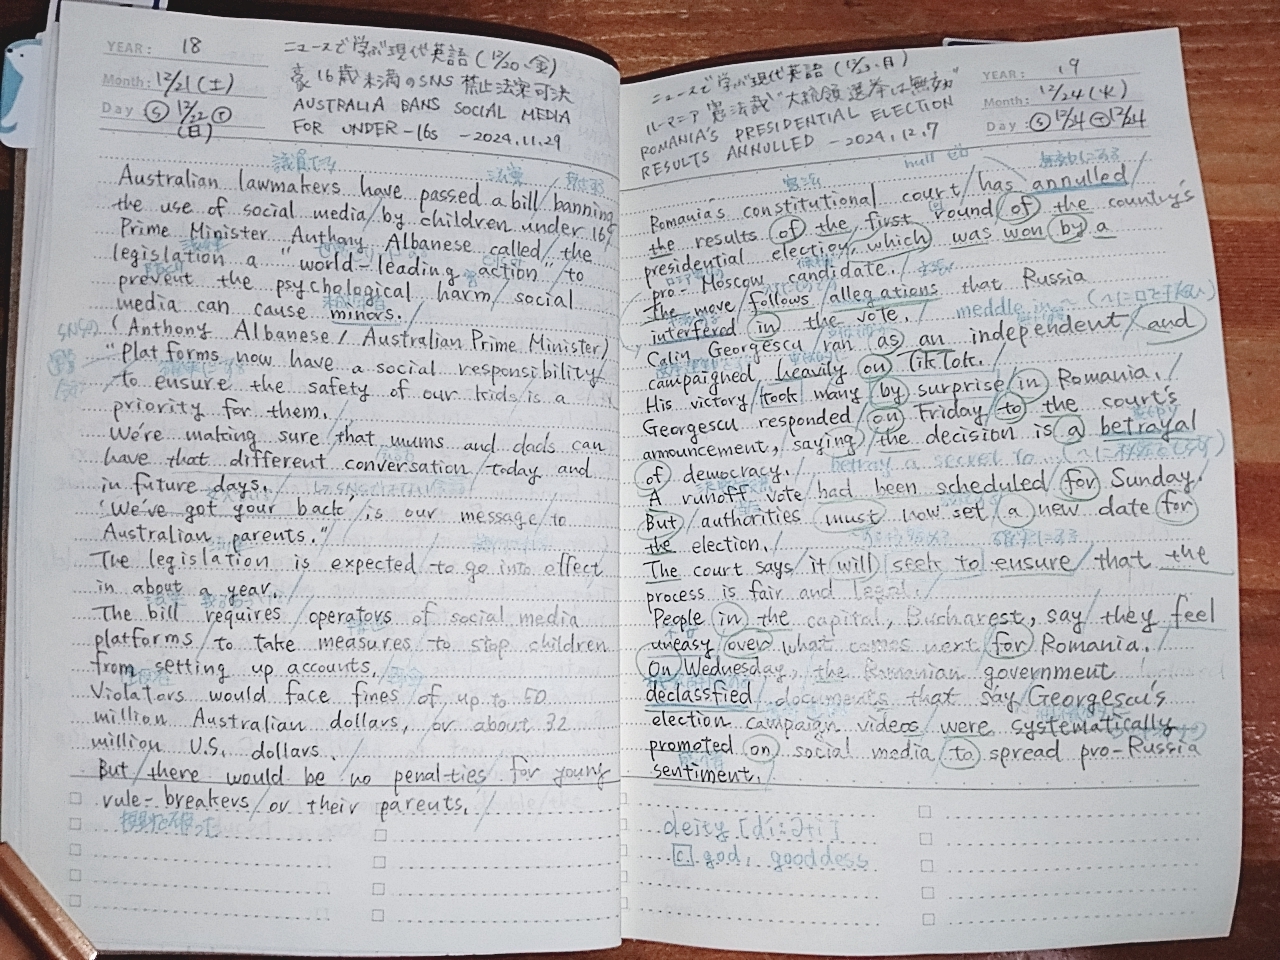 YEAR: 18
Month: 12/21(土)
Day ⑤ 12/22 (日)
ニュースで学ぶ現代英語(12/20、金)
豪16歳未満のSNS禁止法案可決
AUSTRALIA BANS SOCIAL MEDIA
FOR UNDER-16s -2024.11.29
議員たち
法案
Australian lawmakers have passed a bill/banning
the use of social media/by children under 16/
Prime Minister Anthony Albanese called/the
legislation a "world-leading action" to
prevent the psychological harm/social
media can cause minors./
(Anthony Albanese/Australian Prime Minister)
"Platforms now have a social responsibility/
to ensure the safety of our kids/is a
priority for them./
We're making sure/that mums and dads can
have that different conversation/today and
in future days./
'We've got your back'/is our message/to
Australian parents."/
The legislation is expected/to go into effect
in about a year./
The bill requires/operators of social media
platforms/to take measures/to stop children
from setting up accounts./
Violators would face fines/of up to 50
million Australian dollars,/or about 32
million U.S. dollars./
But/there would be no penal-ties/for young
rule-breakers/or their parents./
YEAR: 19
Month: 12/24(火)
Day: ⑤ 12/24 12/24
ニュースで学ぶ現代英語(12/、月)
ルーマニア 憲法裁"大統領選挙は無効"
ROMANIA'S PRESIDENTIAL ELECTION
RESULTS ANNULLED -2024.12.7
null
無効にする
憲法
Romania's constitutional court/has annulled/
the results of the first round of the country's
presidential election/which was won by a
pro-Moscow candidate./
The move/follows allegations that Russia
interfered in the vote./ meddle in~
Calin Georgescu/ran as an independent/and
campaigned heavily on TikTok./
His victory/took many by surprise/in Romania./
Georgescu responded/on Friday/to the court's
announcement, saying/the decision is a betrayal
of democracy./ betray a secret to
A runoff vote had been scheduled/for Sunday.
But/authorities must now set a new date for
the election./
The court says/it will seek to ensure/that the
process is fair and legal./
People in the capital, Bucharest, say/they feel
uneasy over what comes next for Romania./
On Wednesday, the Romanian government
declassfied/documents that say/Georgescu's
election campaign videos were systematically
promoted on social media/to spread pro-Russia
sentiment./
deity [díːəti]
[C] god, gooddess